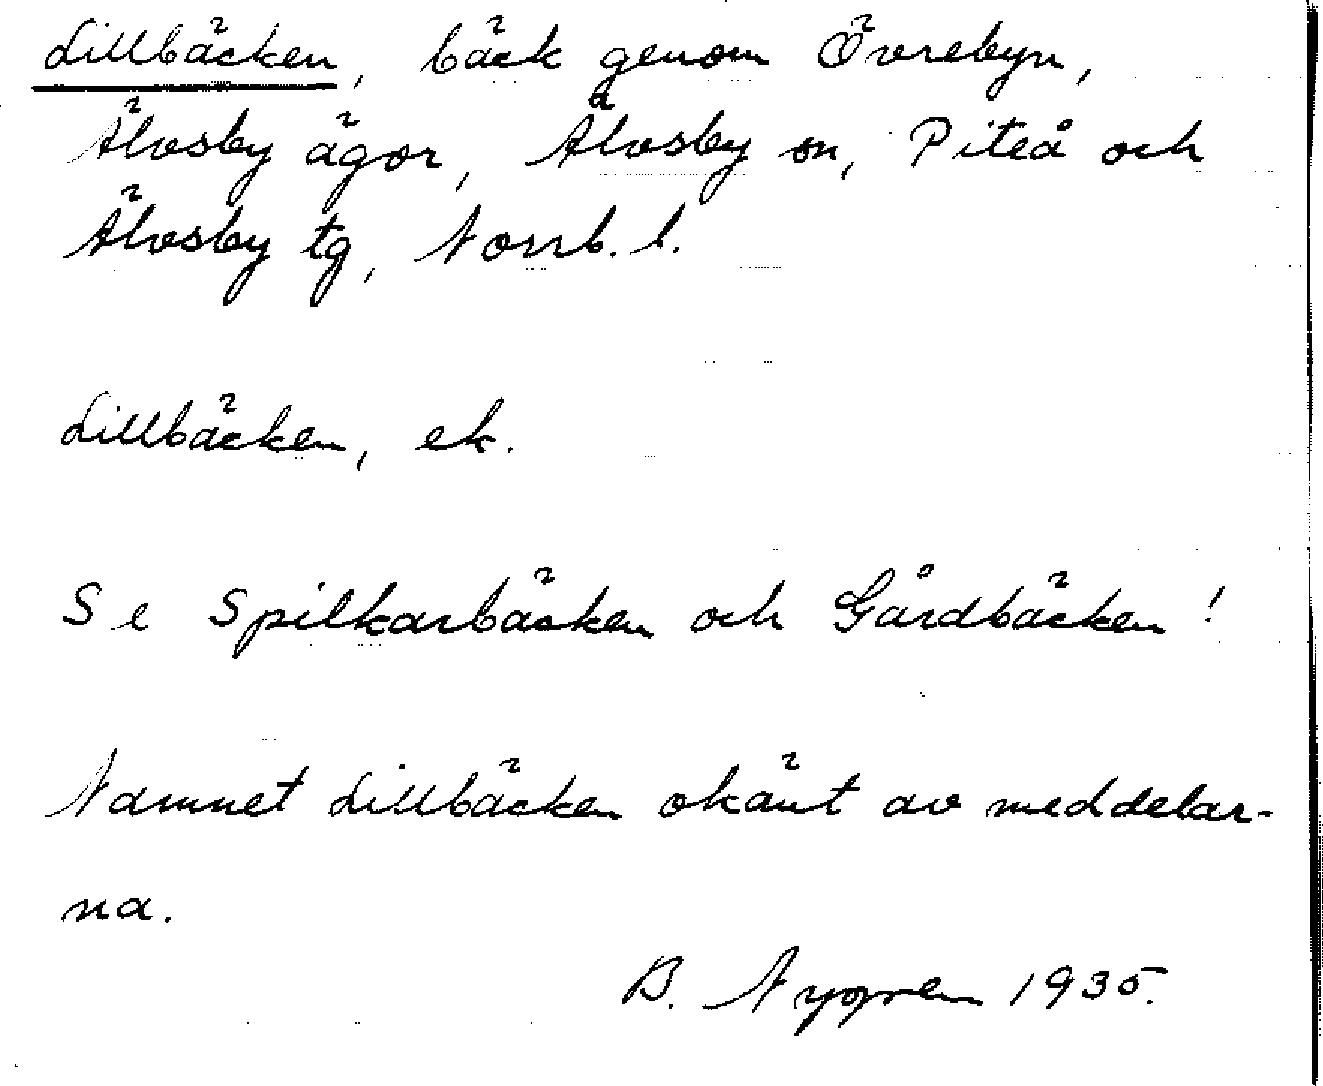 Lillbäcken, bäck genom Övrebyn,
Älvsby ägor, Älvsby sn, Piteå och
Älvsby tg, Norrb. l.
Lillbäcken, ek.
Se Spilkarbäcken och Gårdbäcken!
Namnet Lillbäcken okänt av meddelar-
na.
B. Nygren 1935.